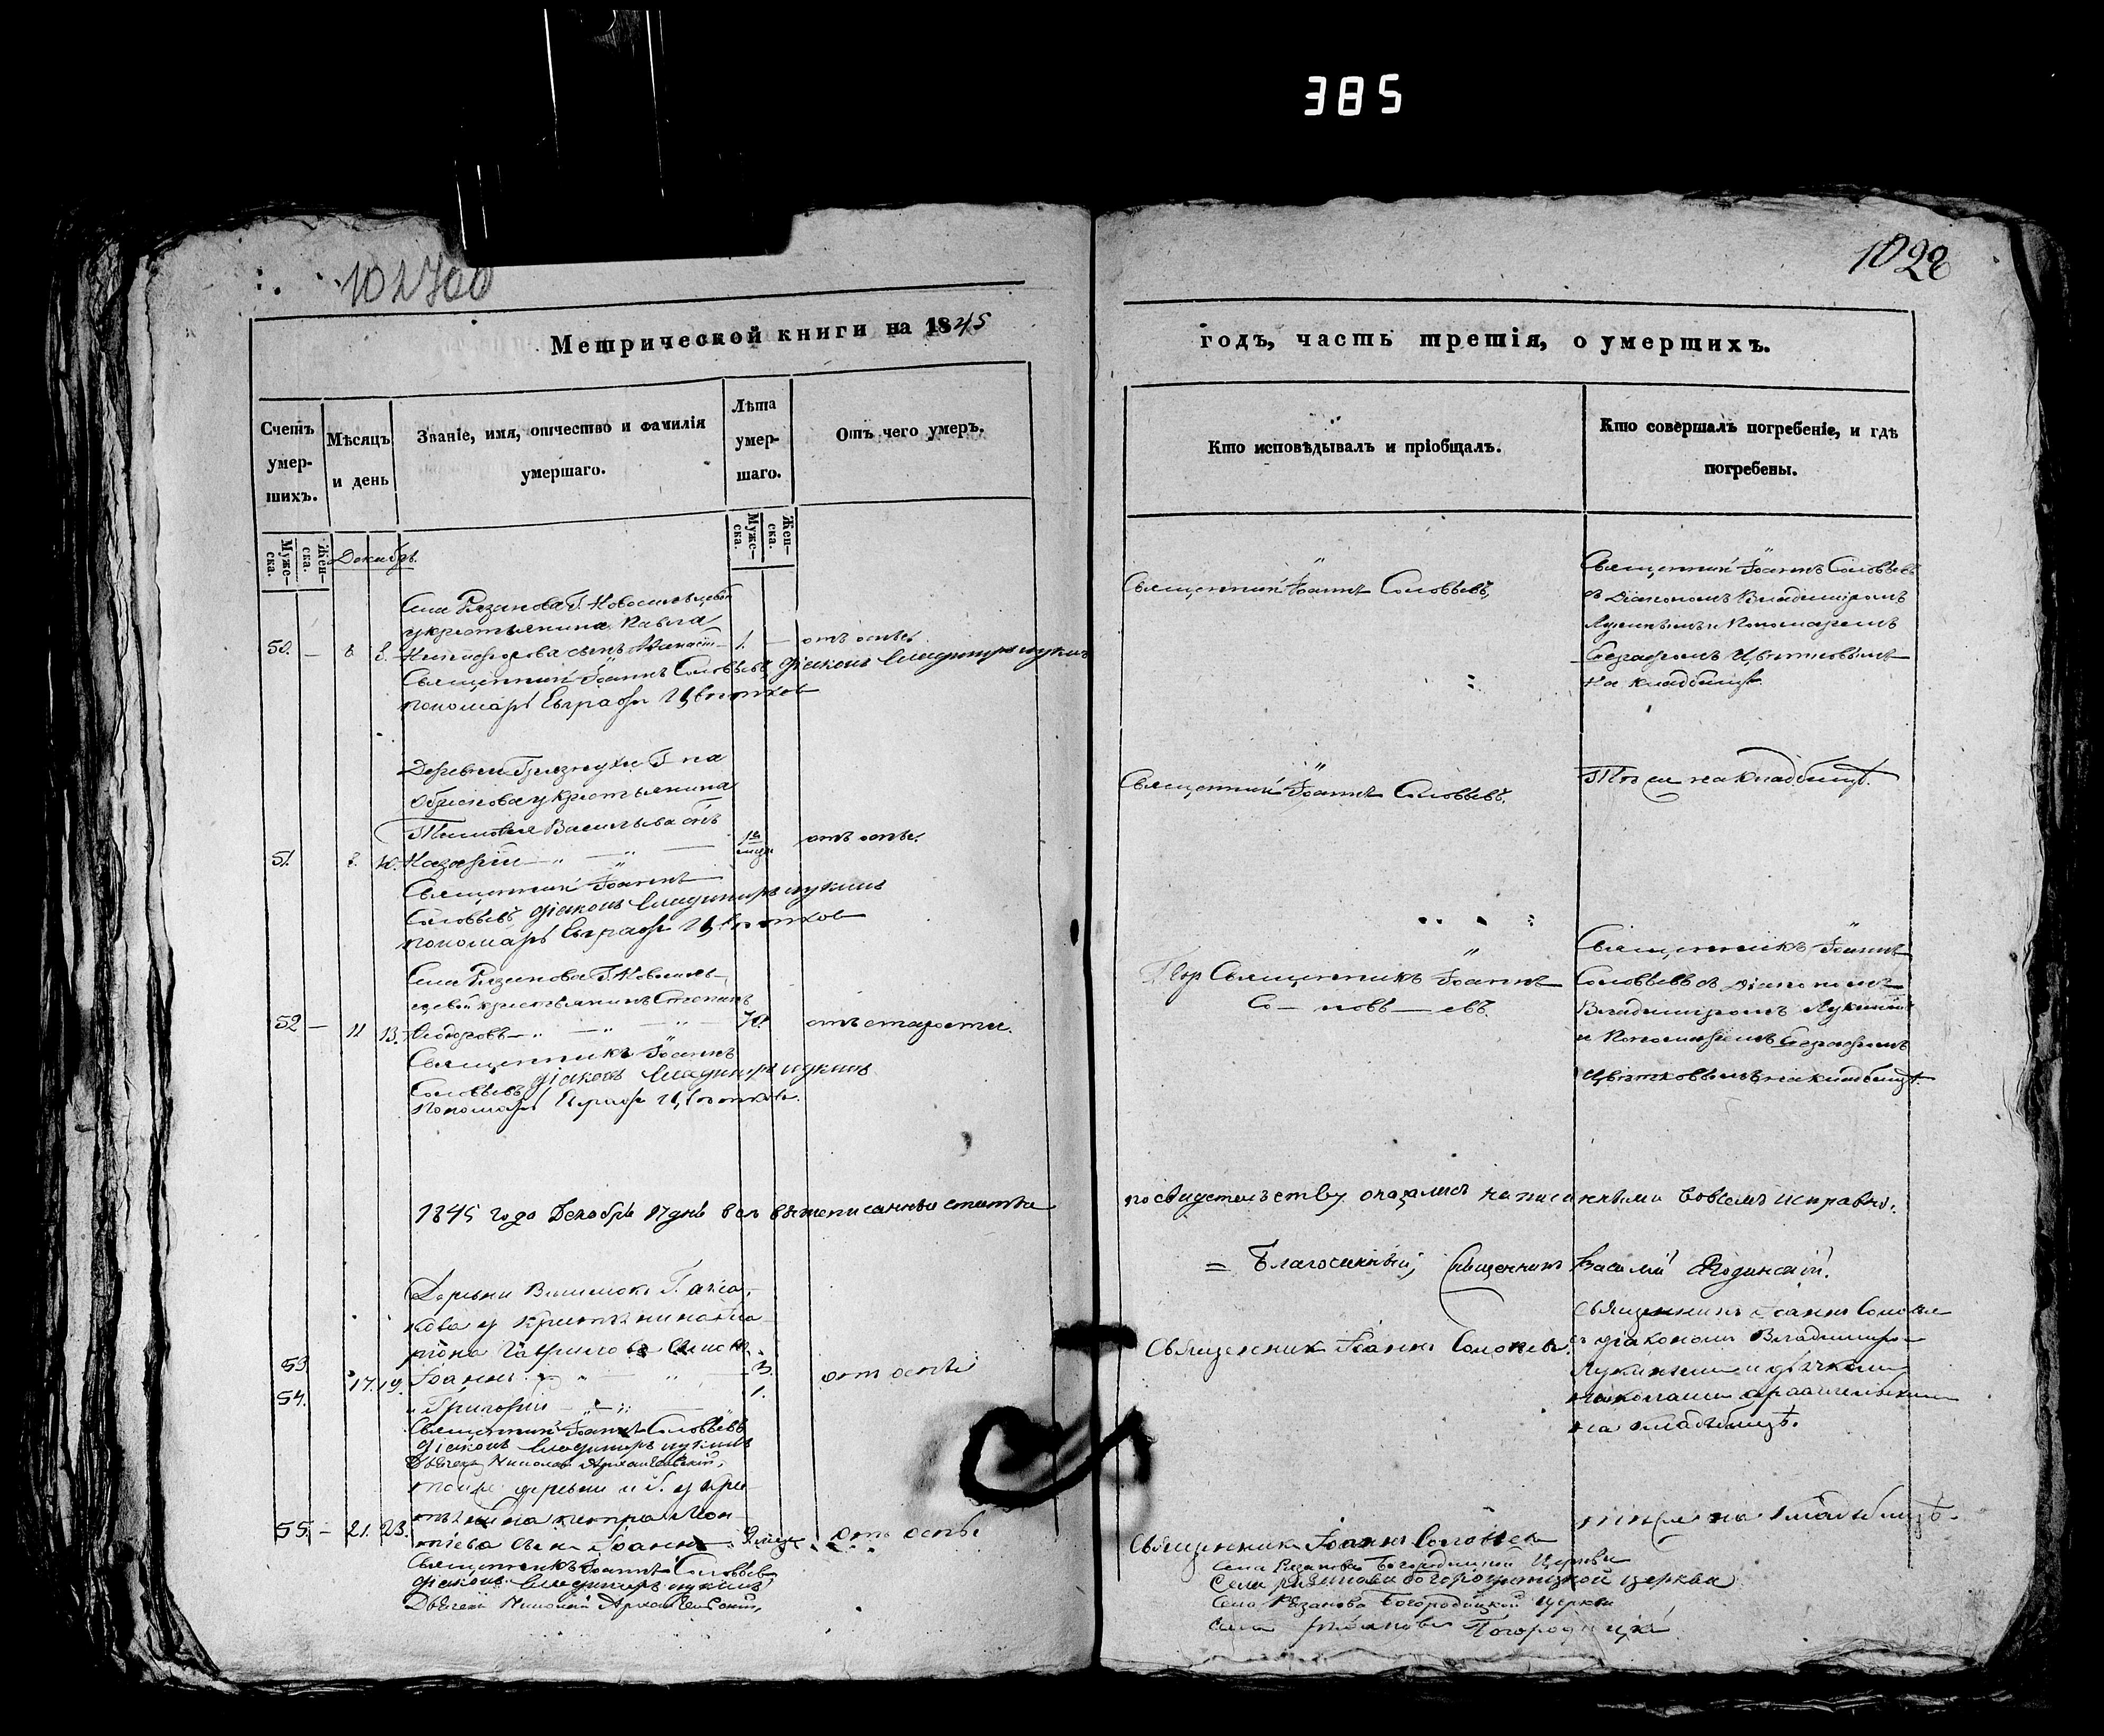 385
1028
Метрической книги на 1845
годъ, часть третія, о умершихъ.
Счетъ умер-шихъ.
Мѣсяцъ и день
Званіе, имя, отчество и фамилія умершаго.
Лѣта умер-шаго.
Отъ чего умеръ.
Кто исповѣдывалъ и пріобщалъ.
Кто совершалъ погребеніе, и гдѣ погребены.
Муже-ска.
Жен-ска.
Муже-ска.
Жен-ска.
Декабрь.
Села Рязанова Г. Новосильцевой
у крестьянина Павла
50. 6. 8. Никифорова сынъ 1. отъ оспы.
Священникъ Іоаннъ Соловьевъ, діаконъ Владимиръ Лукинъ
пономарь Евграфъ Цвѣтковъ
Священникъ Іоаннъ Соловьевъ,
Священникъ Іоаннъ Соловьевъ
съ Діакономъ Владимиромъ
Лукинымъ и Пономаремъ
Евграфомъ Цвѣтковымъ
на кладбищѣ.
Деревни Грязнухи Г-на
у крестьянина
Васильева сынъ
51. 8. 10. Назарій отъ оспы.
Священникъ Іоаннъ
Соловьевъ діаконъ Владимиръ Лукинъ
пономарь Евграфъ Цвѣтковъ
Священникъ Іоаннъ Соловьевъ.
Тѣ же на кладбищѣ.
Села Рязанова Г. Новосиль-
цевой крестьянинъ Степанъ
52 11 13. Ѳедоровъ 70. отъ старости.
Священникъ Іоаннъ
Соловьевъ діаконъ Владимиръ Лукинъ
Пономарь Евграфъ Цвѣтковъ.
Священникъ Іоаннъ
Со-ловь-евъ.
Священникъ Іоаннъ
Соловьевъ съ Діакономъ
Владимиромъ Лукинымъ
и Пономаремъ Евграфомъ
Цвѣтковымъ на кладбищѣ
1845 года Декабря 17 дня всѣ вышеписанныя статьи
по свидѣтельству оказались написанными вовсемъ исправно.
= Благочинный, Священникъ Василій
Деревни Г.
у крестьянина
Гаврилова
53 17. 19. Іоаннъ 3. отъ оспы
54. Григорій 1.
Священникъ Іоаннъ Соловьевъ
діаконъ Владимиръ Лукинъ
Дьячекъ Николай Архангельскій,
Священникъ Іоаннъ Соловьевъ.
Священникъ Іоаннъ Соловьевъ
съ діакономъ Владимиромъ
Лукинымъ и дьячкомъ
Николаемъ Архангельскимъ
на кладбищѣ.
той же деревни и Г. у кре-
стьянина Петра Леон-
55. 21. 23. тіева сынъ Іоаннъ отъ оспы
Священникъ Іоаннъ Соловьевъ
діаконъ Владимиръ Лукинъ
Дьячекъ Николай Архангельскій,
Священникъ Іоаннъ Соловьевъ
тѣ же на кладбищѣ.
Села Рязанова Богородицкой Церкви
Села Рязанова Богородицкой церкви
Села Рязанова Богородицкой церкви
Села Рязанова